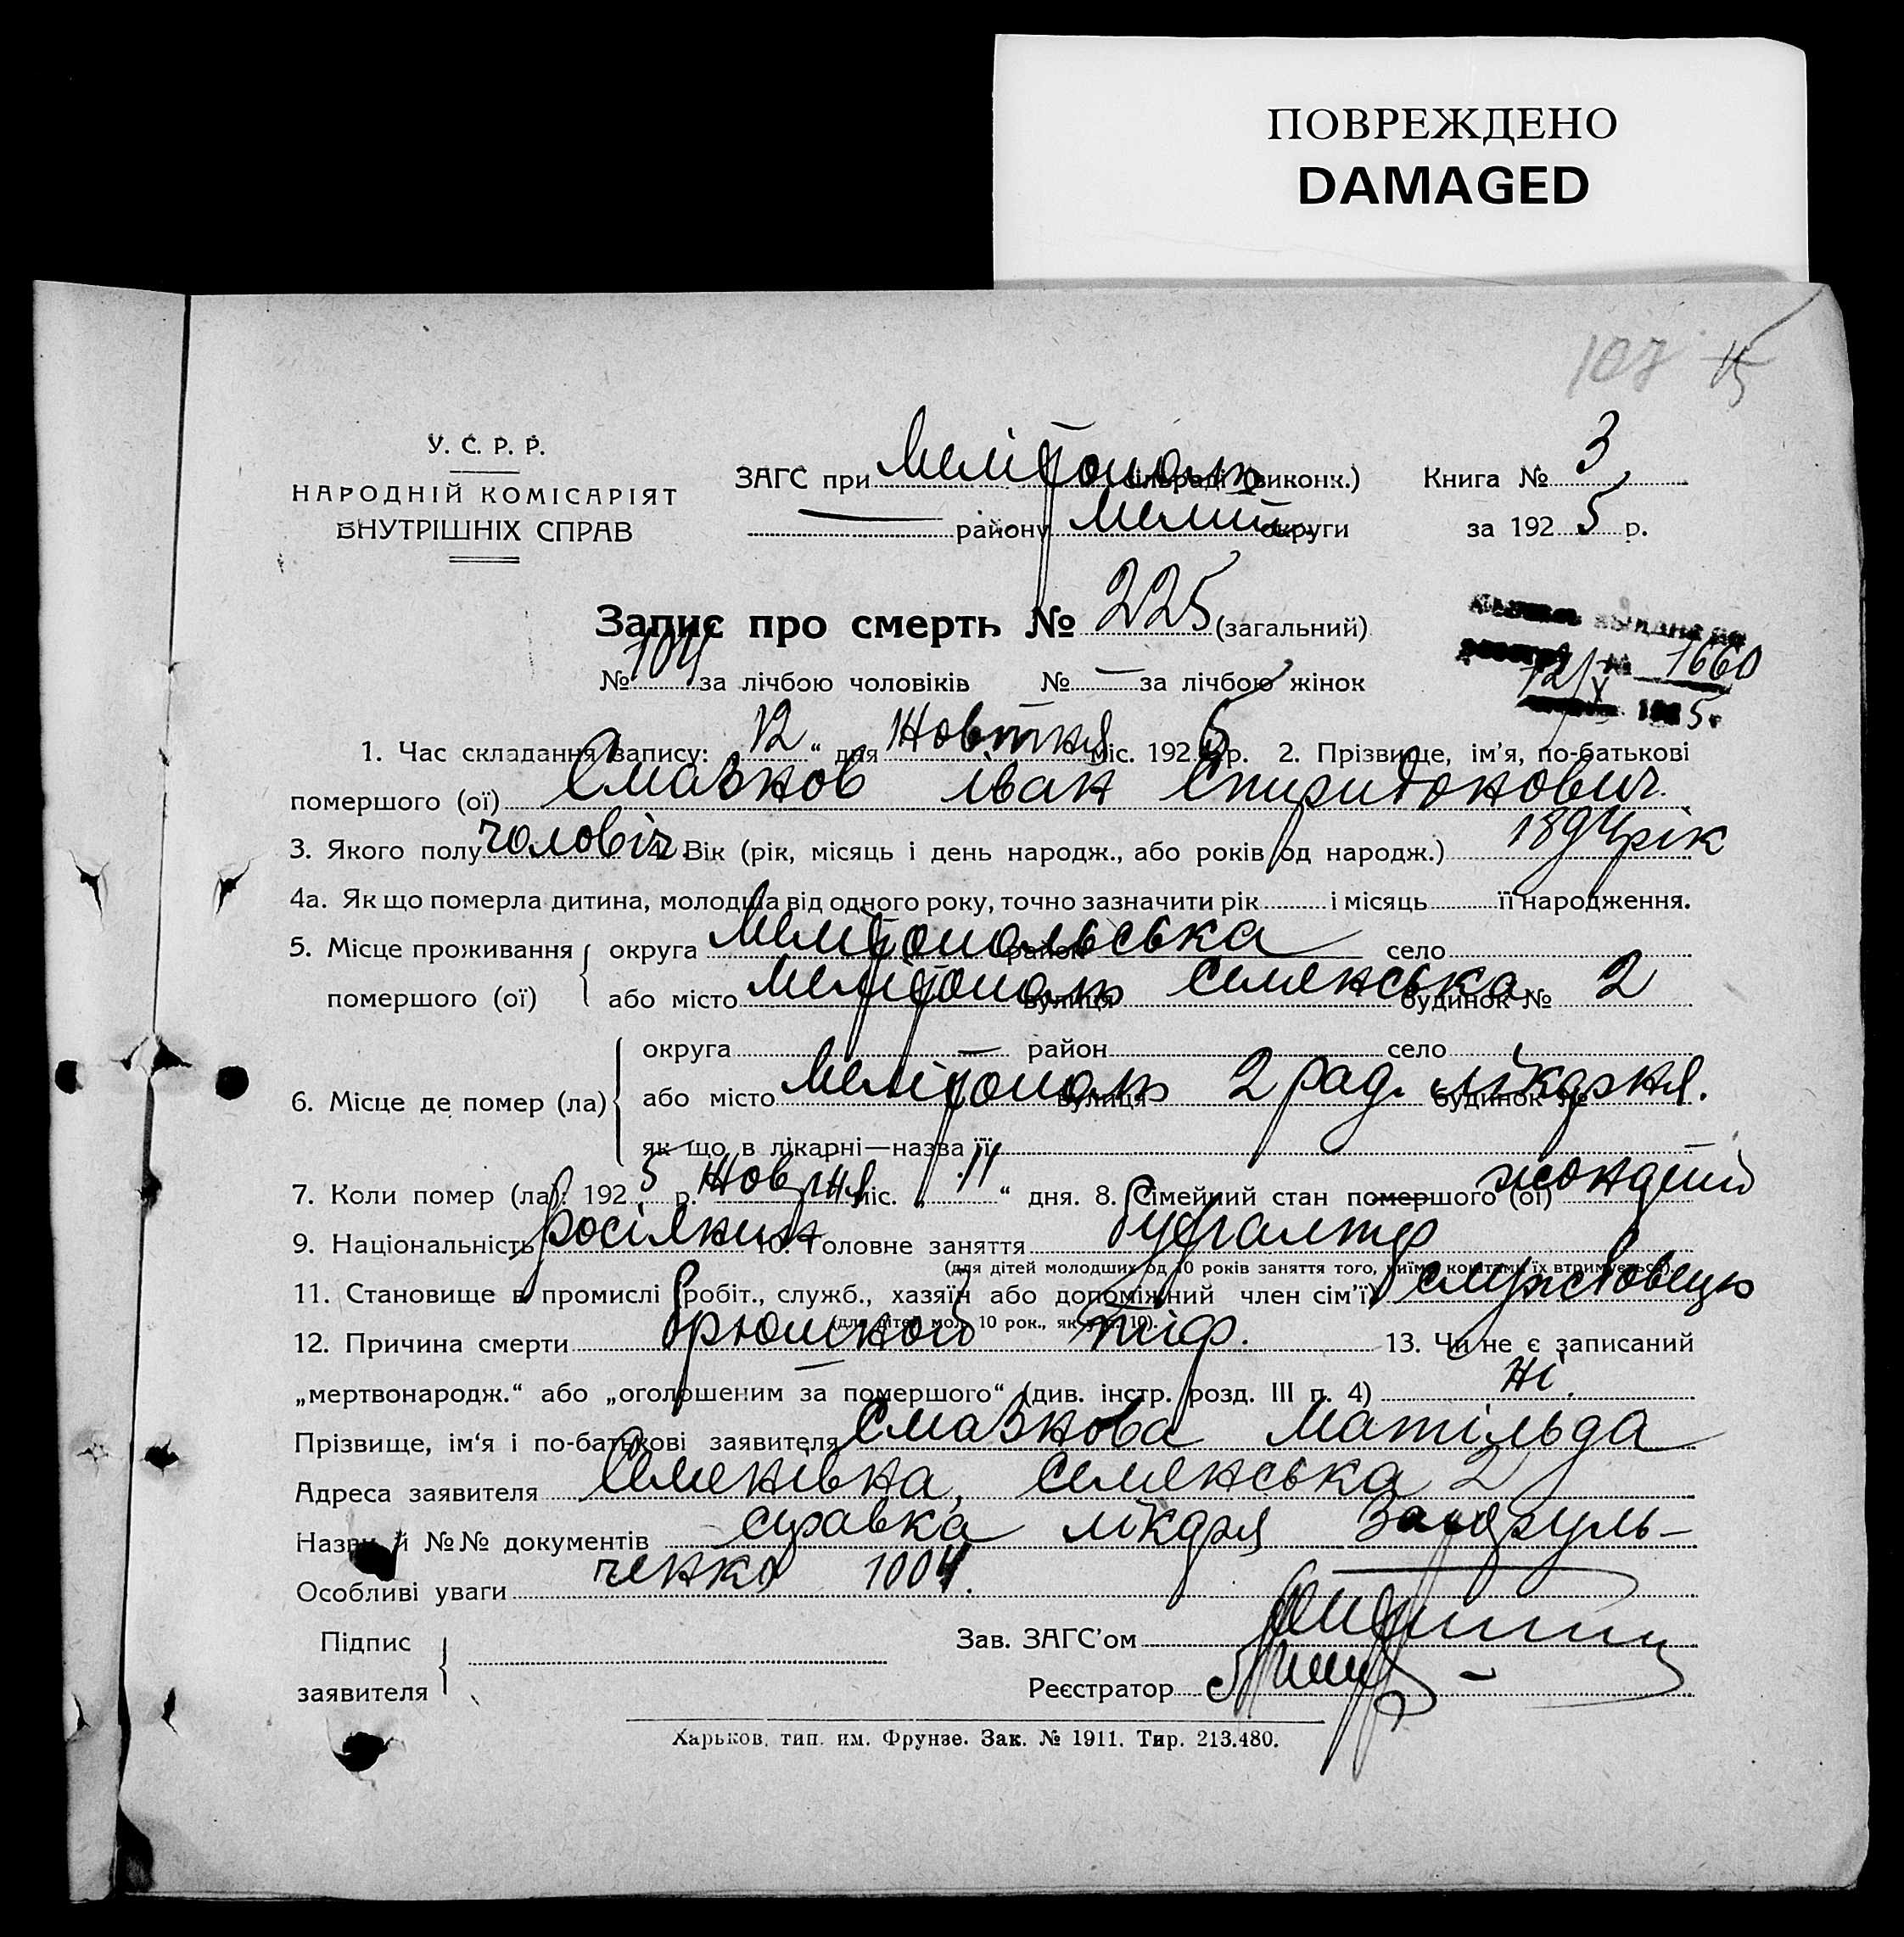 ПОВРЕЖДЕНО
DAMAGED
107 15
У. С. Р. Р.
НАРОДНІЙ КОМІСАРІЯТ
ВНУТРІШНІХ СПРАВ
ЗАГС при Мелітополь сільраді (виконк.) Книга № 3
— району Меліт. округи за 1925 р.
Запис про смерть № 225 (загальний)
№ 104 за лічбою чоловіків № — за лічбою жінок
выдана
№ 1660
12/X 1925 г
1. Час складання запису: 12 “ дня Жовтня міс. 1925 р. 2. Прізвище, ім’я, по-батькові
помершого (ої) Смазнов Іван Спиридонович.
3. Якого полу чоловіч. 4. Вік (рік, місяць і день народж., або років од народж.) 1894 рік
4а. Як що померла дитина, молодша від одного року, точно зазначити рік і місяць її народження.
5. Місце проживання округа Мелітопольська район село
помершого (ої) або місто Мелітополь вулиця Семенська будинок № 2
округа — район село
6. Місце де помер (ла) або місто Мелітополь вулиця 2 рад. лікарня. будинок №
як що в лікарні—назва її
7. Коли помер (ла): 1925 р. Жовтня міс. „ 11 “ дня. 8. Сімейний стан помершого (ої) жонатий
9. Національність росіянин 10. Головне заняття бухгалтер
(для дітей молодших од 10 років заняття того, чиїми коштами їх втримується).
11. Становище в промислі (робіт., служб., хазяїн або допоміжний член сім’ї) службовець
(для дітей мол. 10 рок., як у п. 10).
12. Причина смерти брюшной тиф. 13. Чи не є записаний
„мертвонародж.“ або „оголошеним за помершого“ (див. інстр. розд. III п. 4) ні.
Прізвище, ім‘я і по-батькові заявителя Смазнова Матільда
Адреса заявителя Семенівка, Семенська 2
Назви й №№ документів справка лікаря
Особливі уваги ченко 1004.
Підпис
заявителя
Зав. ЗАГС’ом
Реєстратор
Харьков, тип. им. Фрунзе. Зак. № 1911. Тир. 213.480.